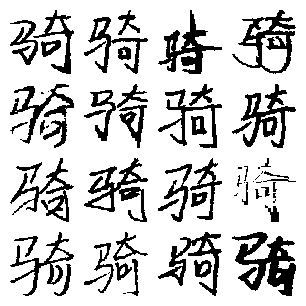 骑骑骑骑
骑骑骑骑
骑骑骑骑
骑骑骑骑